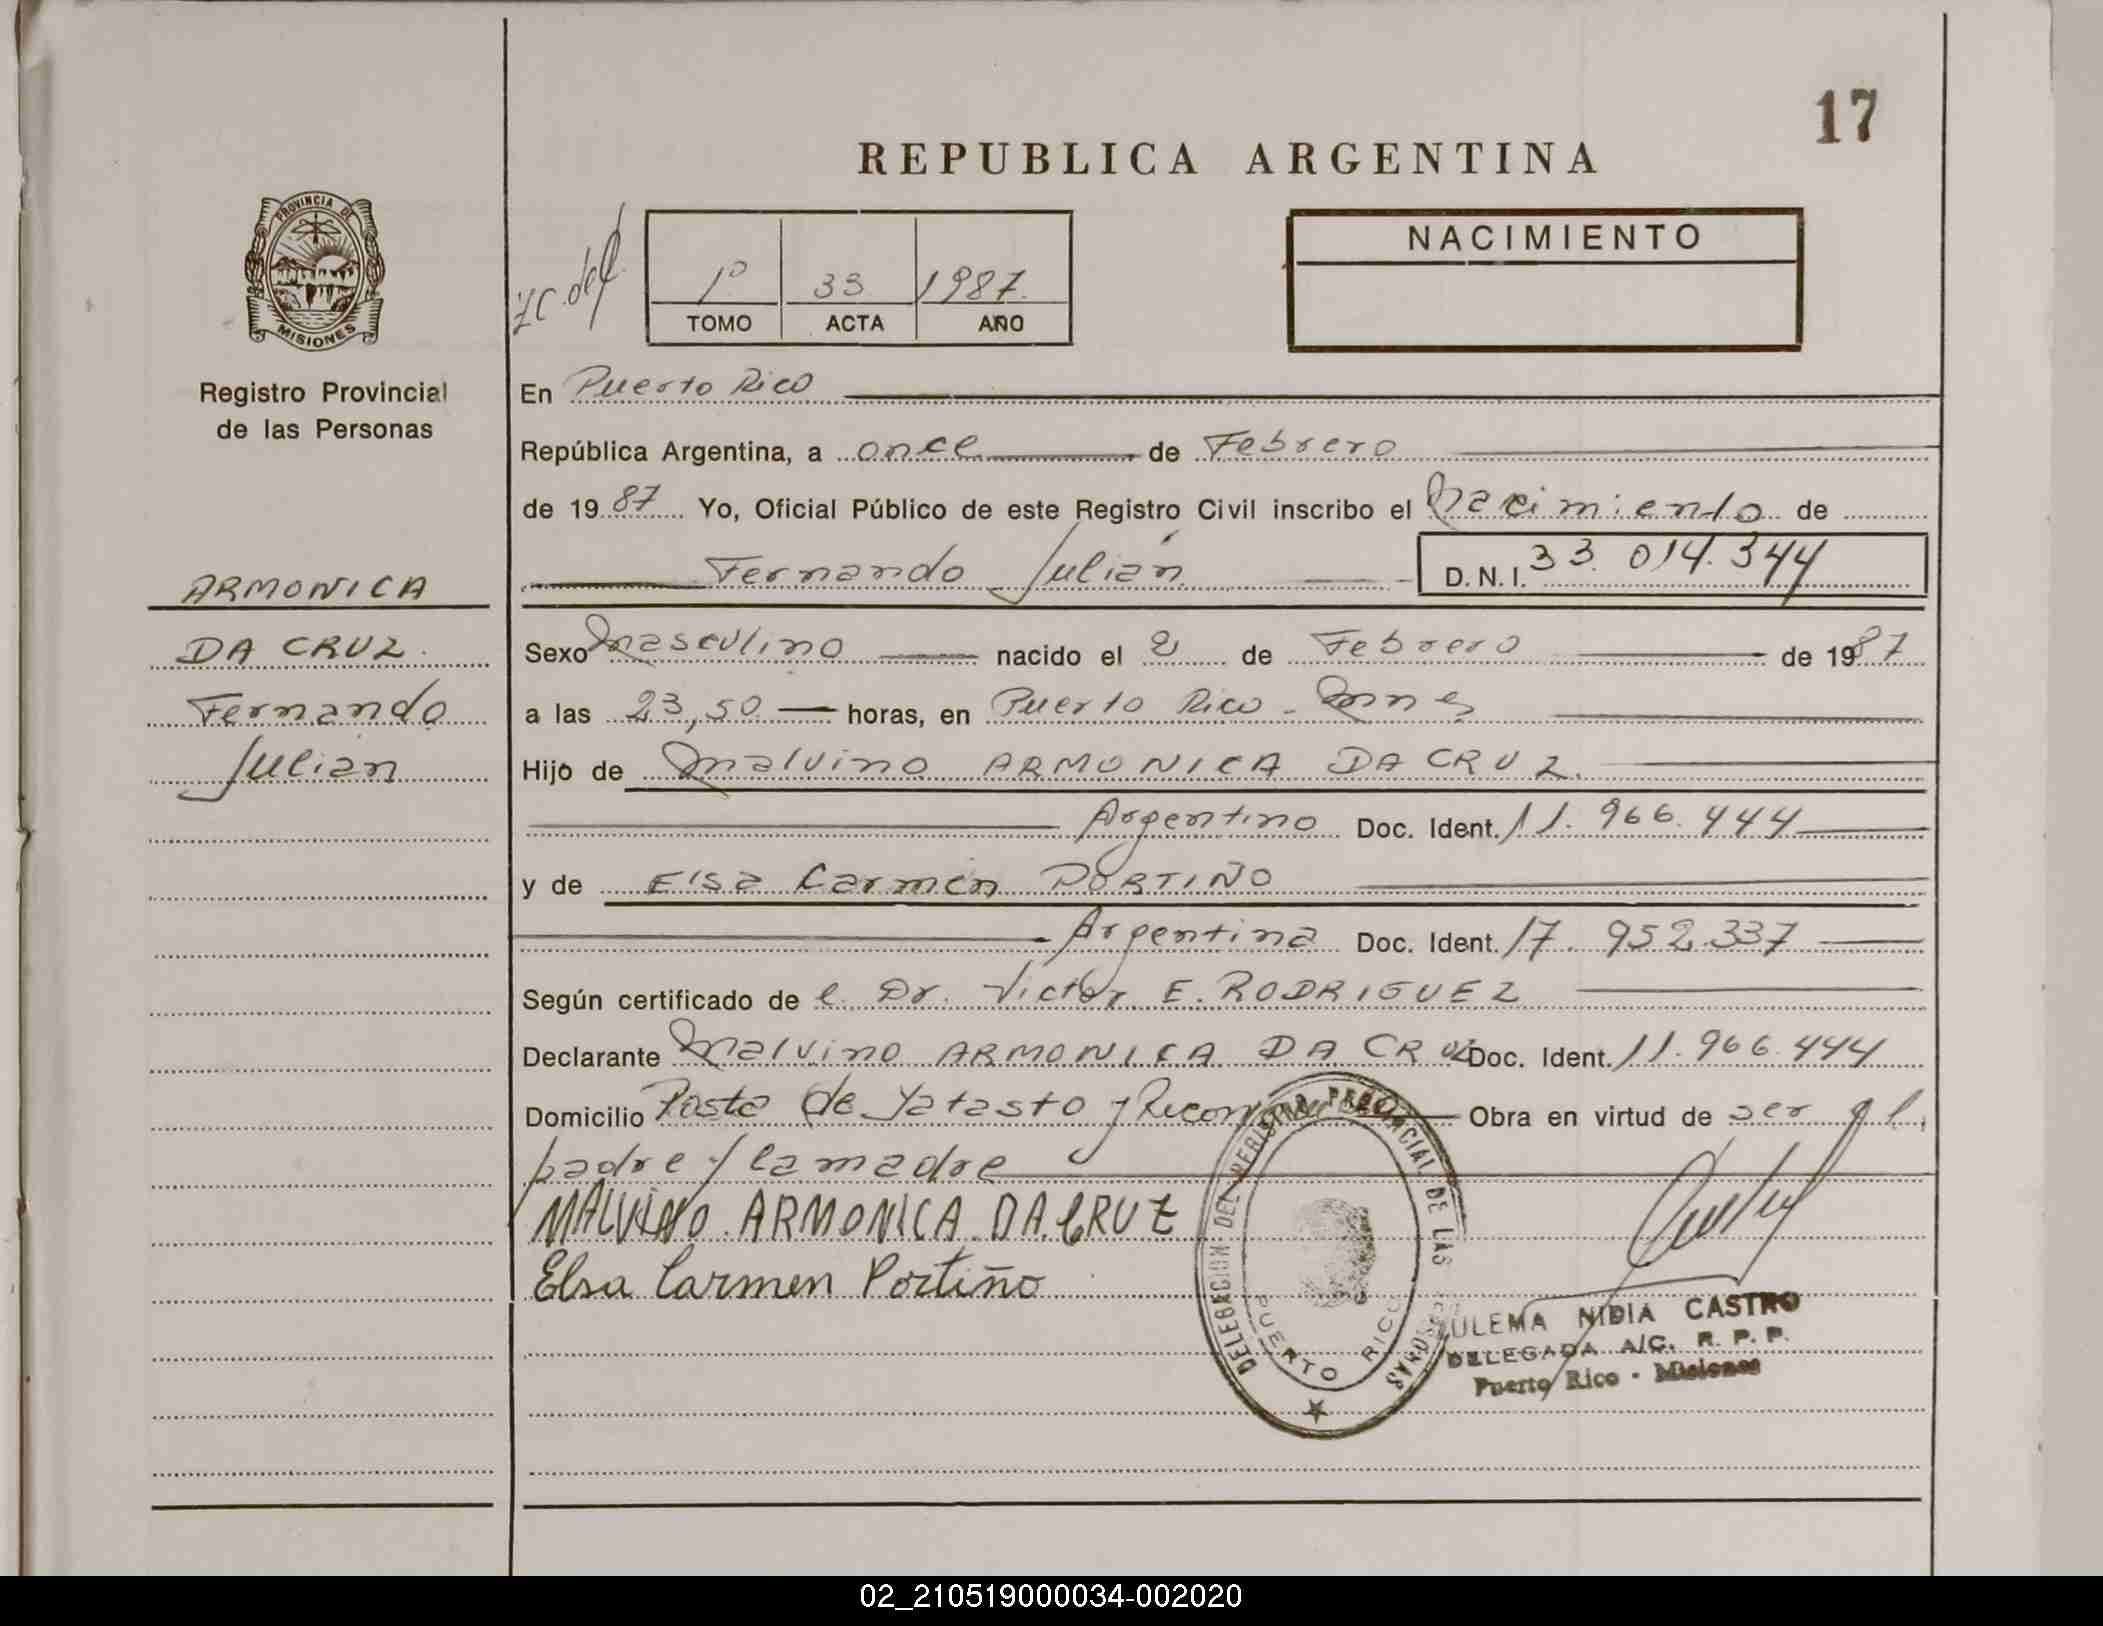 17
REPUBLICA ARGENTINA
PROVINCIA DE
MISIONES
Registro Provincial
de las Personas
1º 33 1987
TOMO ACTA AÑO
NACIMIENTO
En Puerto Rico
República Argentina, a once de Febrero
de 1987 Yo, Oficial Público de este Registro Civil inscribo el Nacimiento de
Fernando Julián D.N.I. 33.014.344
ARMONICA
DA CRUZ
Fernando
Julián
Sexo Masculino nacido el 2 de Febrero de 1987
a las 23,50 horas, en Puerto Rico - Mnes
Hijo de Malvino ARMONICA DA CRUZ.
Argentino Doc. Ident. 11.966.444
y de Elsa Carmen PORTIÑO
Argentina Doc. Ident. 17.952.337
Según certificado de l Dr. Victor E. RODRIGUEZ
Declarante Malvino ARMONICA DA CRUZ Doc. Ident. 11.966.444
Domicilio Posta de Yatasto y Obra en virtud de ser el
padre y la madre
MALVINO ARMONICA DA CRUZ
Elsa Carmen Portiño
DELEGACION DEL REGISTRO PROVINCIAL DE LAS PERSONAS
PUERTO RICO
ZULEMA NIDIA CASTRO
DELEGADA A/C. R. P. P.
Puerto Rico - Misiones
02_210519000034-002020